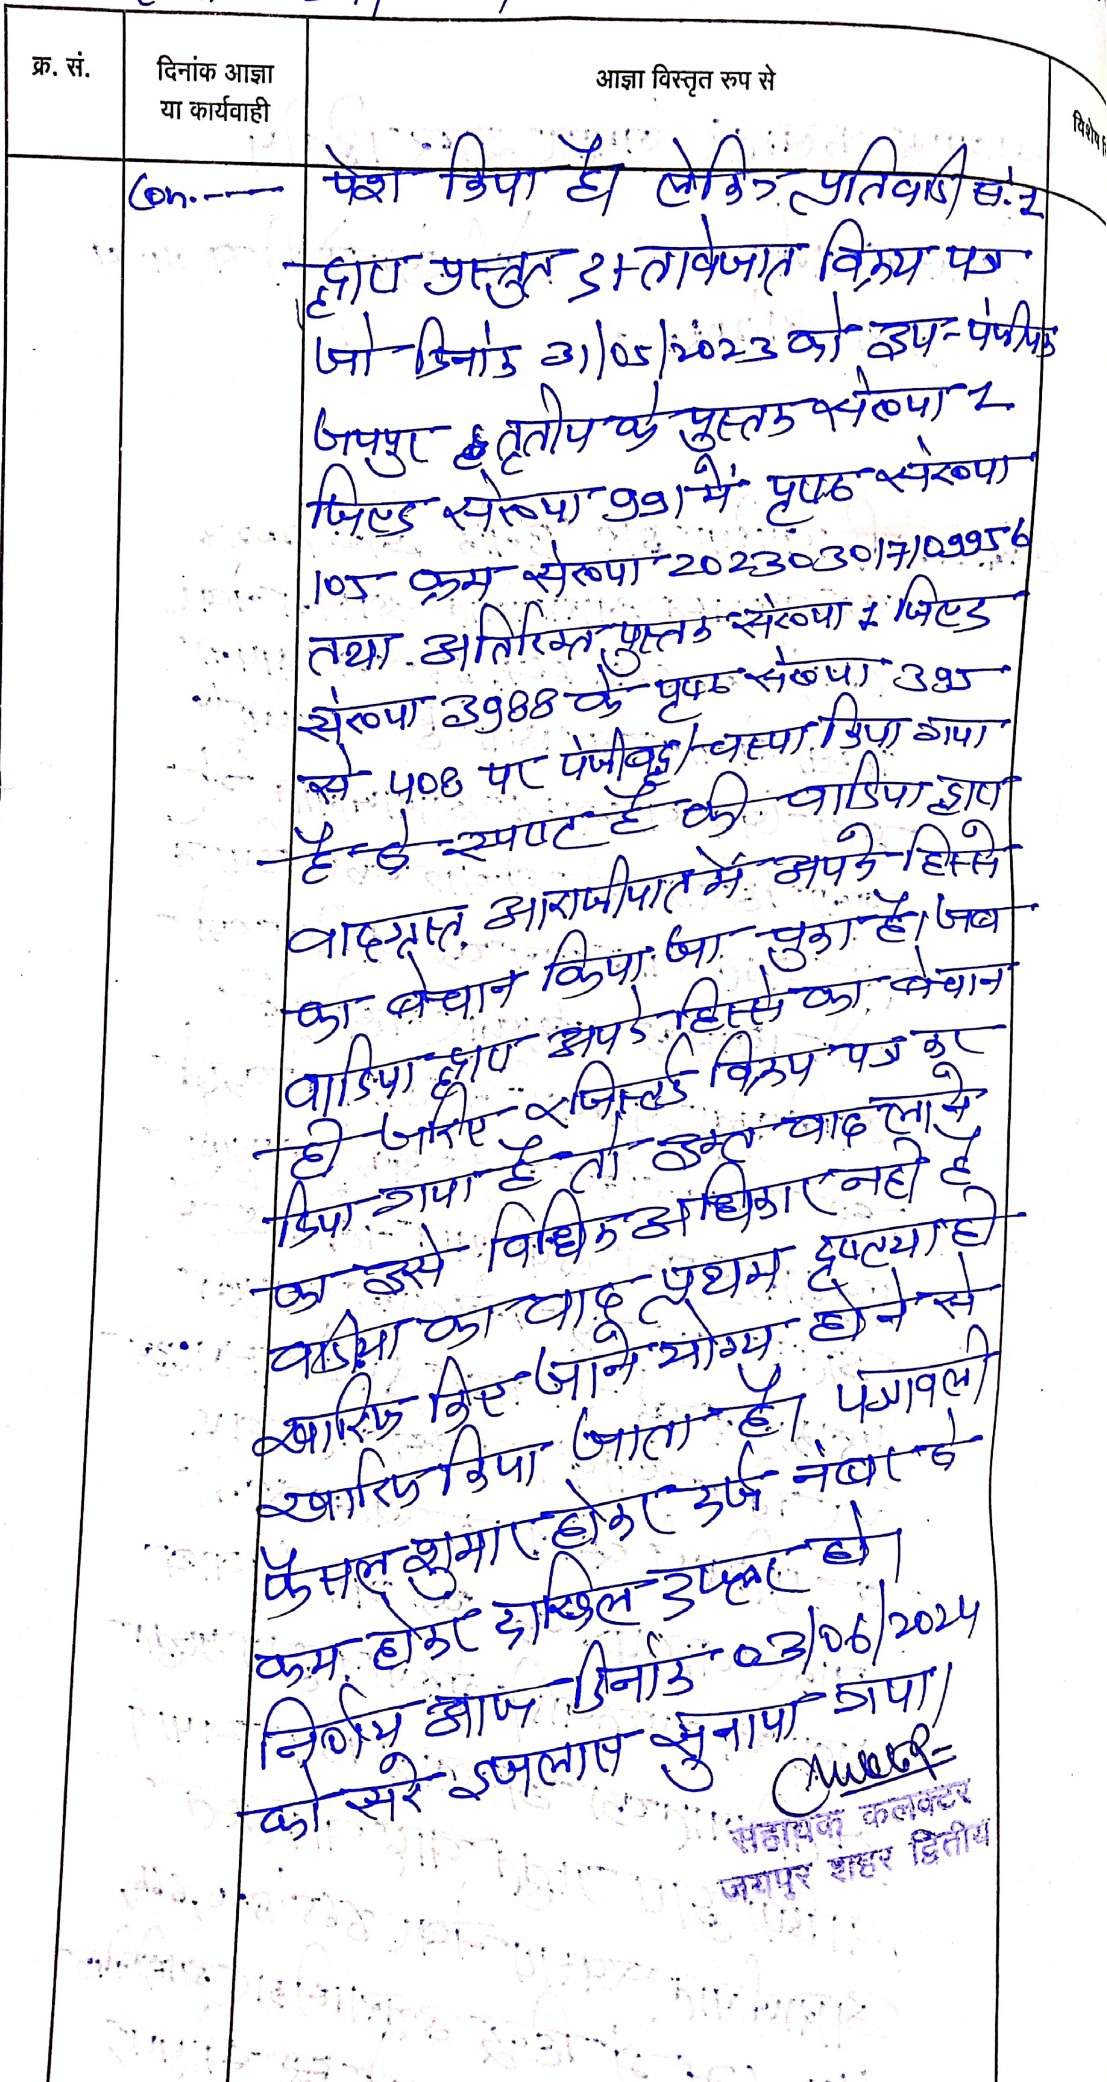 क्र. सं.
दिनांक आज्ञा
या कार्यवाही
आज्ञा विस्तृत रुप से
विशेष
Con.---- पेश किया है। लेकिन प्रतिवादी सं. 1
द्वारा प्रस्तुत दस्तावेजात विक्रय पत्र
जो दिनांक 31/05/2023 को उप-पंजीयक
जयपुर तृतीय के पुस्तक संख्या 1
जिल्द संख्या 991 में पृष्ठ संख्या
105 क्रम संख्या 202303017109956
तथा अतिरिक्त पुस्तक संख्या 1 जिल्द
संख्या 3988 के पृष्ठ संख्या 395
से 408 पर पंजीबद्ध/चस्पा किया गया
है से स्पष्ट है की वादिया द्वारा
वादग्रस्त आराजीयात में अपने हिस्से
का बेचान किया जा चुका है। जब
वादिया द्वारा अपने हिस्से का बेचान
ही जरिए रजिस्टर्ड विक्रय पत्र कर
दिया गया है तो उक्त वाद लाने
का उसे विधिक अधिकार नहीं है
वादिया का वाद प्रथम दृष्टया ही
खारिज किए जाने योग्य होने से
खारिज किया जाता है। पत्रावली
फैसल शुमार होकर दर्ज नंबर से
कम होकर दाखिल दफ्तर हो।
निर्णय आज दिनांक 03/06/2024
को सरे इजलास सुनाया गया।
सहायक कलक्टर
जयपुर शहर द्वितीय